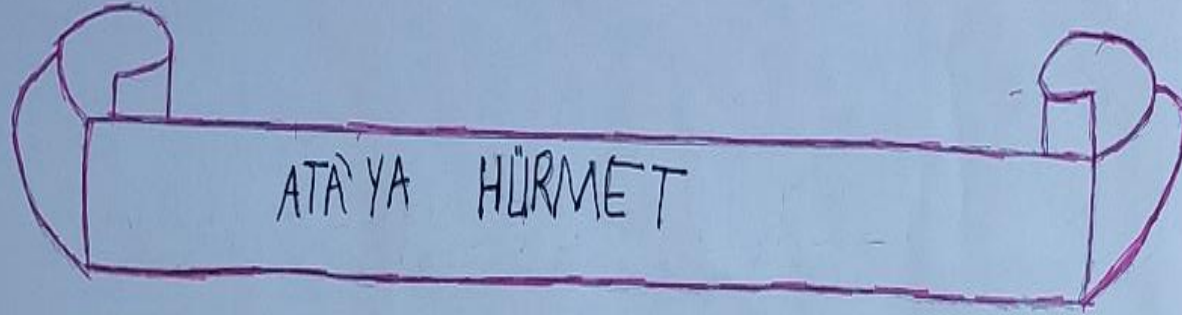 ATA'YA HÜRMET